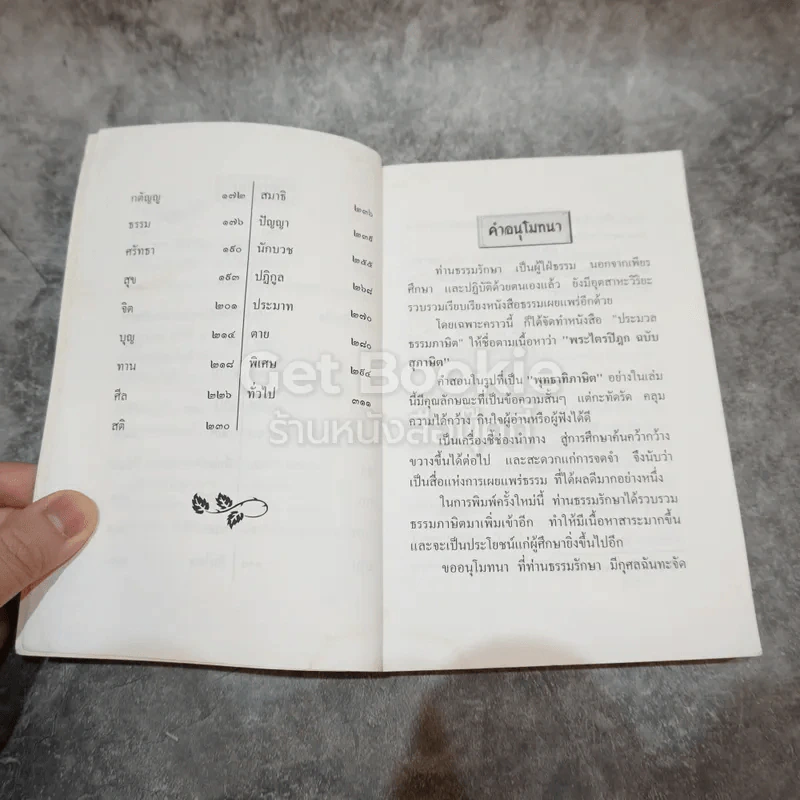 กตัญญู ๑๗๒ สมาธิ ๒๓๖
ธรรม ๑๗๖ ปัญญา ๒๓๙
ศรัทธา ๑๙๐ นักบวช ๒๕๕
สุข ๑๙๓ ปฏิกูล ๒๖๘
จิต ๒๐๑ ประมาท ๒๗๐
บุญ ๒๑๔ ตาย ๒๘๐
ทาน ๒๑๘ พิเศษ ๒๙๔
ศีล ๒๒๖ ทั่วไป ๓๑๑
สติ ๒๓๐
คำอนุโมทนา
ท่านธรรมรักษา เป็นผู้ใฝ่ธรรม นอกจากเพียร
ศึกษา และปฏิบัติด้วยตนเองแล้ว ยังมีอุตสาหะวิริยะ
รวบรวมเรียบเรียงหนังสือธรรมเผยแพร่อีกด้วย
โดยเฉพาะคราวนี้ ก็ได้จัดทำหนังสือ "ประมวล
ธรรมภาษิต" ให้ชื่อตามเนื้อหาว่า "พระไตรปิฎก ฉบับ
สุภาษิต"
คำสอนในรูปที่เป็น "พุทธาทิภาษิต" อย่างในเล่ม
นี้มีคุณลักษณะที่เป็นข้อความสั้นๆ แต่กะทัดรัด คลุม
ความได้กว้าง กินใจผู้อ่านหรือผู้ฟังได้ดี
เป็นเครื่องชี้ช่องนำทาง สู่การศึกษาค้นคว้ากว้าง
ขวางขึ้นได้ต่อไป และสะดวกแก่การจดจำ จึงนับว่า
เป็นสื่อแห่งการเผยแพร่ธรรม ที่ได้ผลดีมากอย่างหนึ่ง
ในการพิมพ์ครั้งใหม่นี้ ท่านธรรมรักษาได้รวบรวม
ธรรมภาษิตมาเพิ่มเข้าอีก ทำให้มีเนื้อหาสาระมากขึ้น
และจะเป็นประโยชน์แก่ผู้ศึกษายิ่งขึ้นไปอีก
ขออนุโมทนา ที่ท่านธรรมรักษา มีกุศลฉันทะจัด
Get Bookie
ร้านหนังสือเก็ทบุ๊คกี้